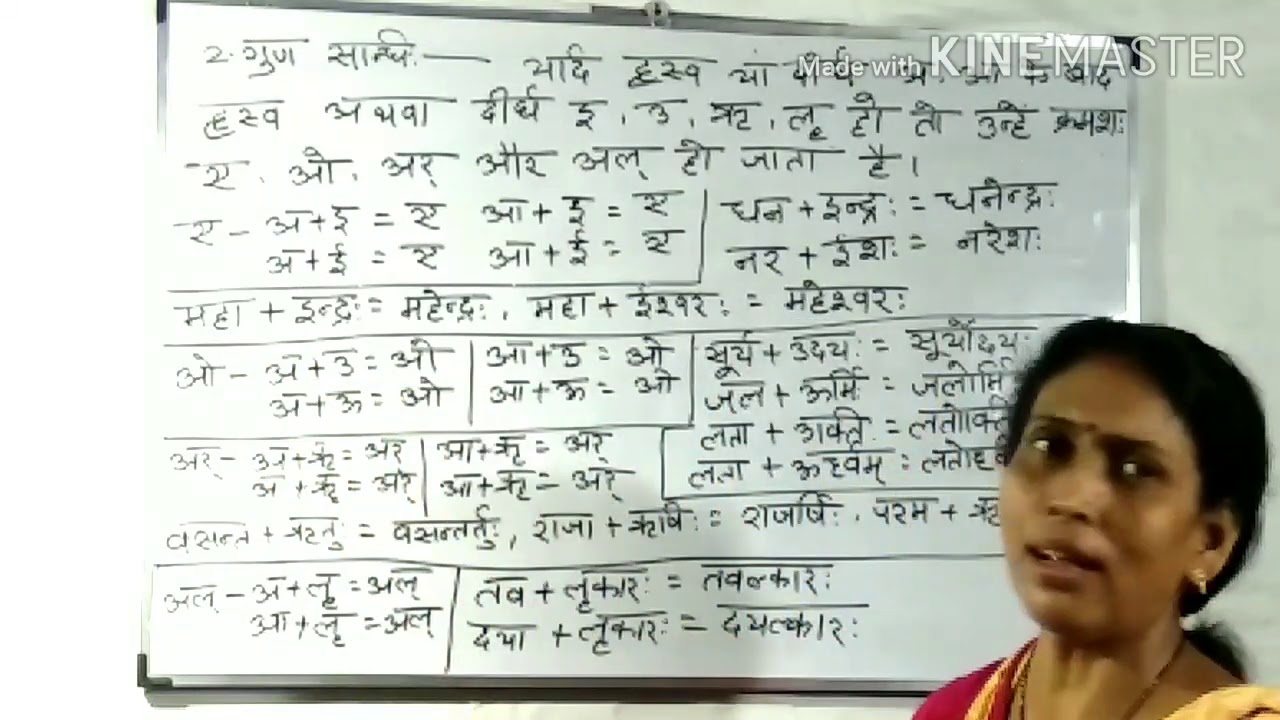 Made with KINEMASTER
2. गुण सान्धिः — यदि ह्रस्व या दीर्घ अ, आ के बाद
ह्रस्व अथवा दीर्घ इ, उ, ऋ, लृ हो तो उन्हें क्रमशः
ए, ओ, अर् और अल् हो जाता है।
ए - अ + इ = ए आ + इ = ए धन + इन्द्रः = धनेन्द्रः
अ + ई = ए आ + ई = ए नर + ईशः = नरेशः
महा + इन्द्रः = महेन्द्रः, महा + ईश्वरः = महेश्वरः
ओ - अ + उ = ओ आ + उ = ओ सूर्य + उदयः = सूर्योदयः
अ + ऊ = ओ आ + ऊ = ओ जल + ऊर्मिः = जलोर्मि
लता + उक्तिः = लतोक्ति
अर् - अ + ऋ = अर् आ + ऋ = अर् लता + ऊर्ध्वम् =
अ + ॠ = अर् आ + ॠ = अर्
वसन्त + ऋतुः = वसन्तर्तुः, राजा + ऋषिः = राजर्षिः, परम + ऋ
अल् - अ + लृ = अल् तव + लृकारः = तवल्कारः
आ + लृ = अल् दया + लृकारः = दयल्कारः